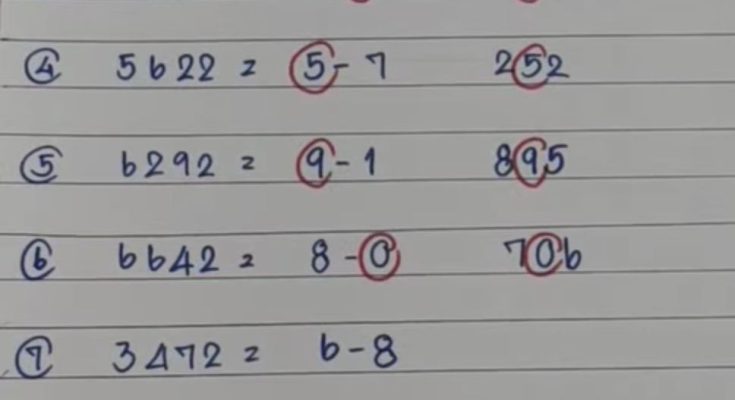 ④ 5622 = 5-7 252
⑤ 6292 = 9-1 895
⑥ 6642 = 8-0 706
⑦ 3472 = 6-8